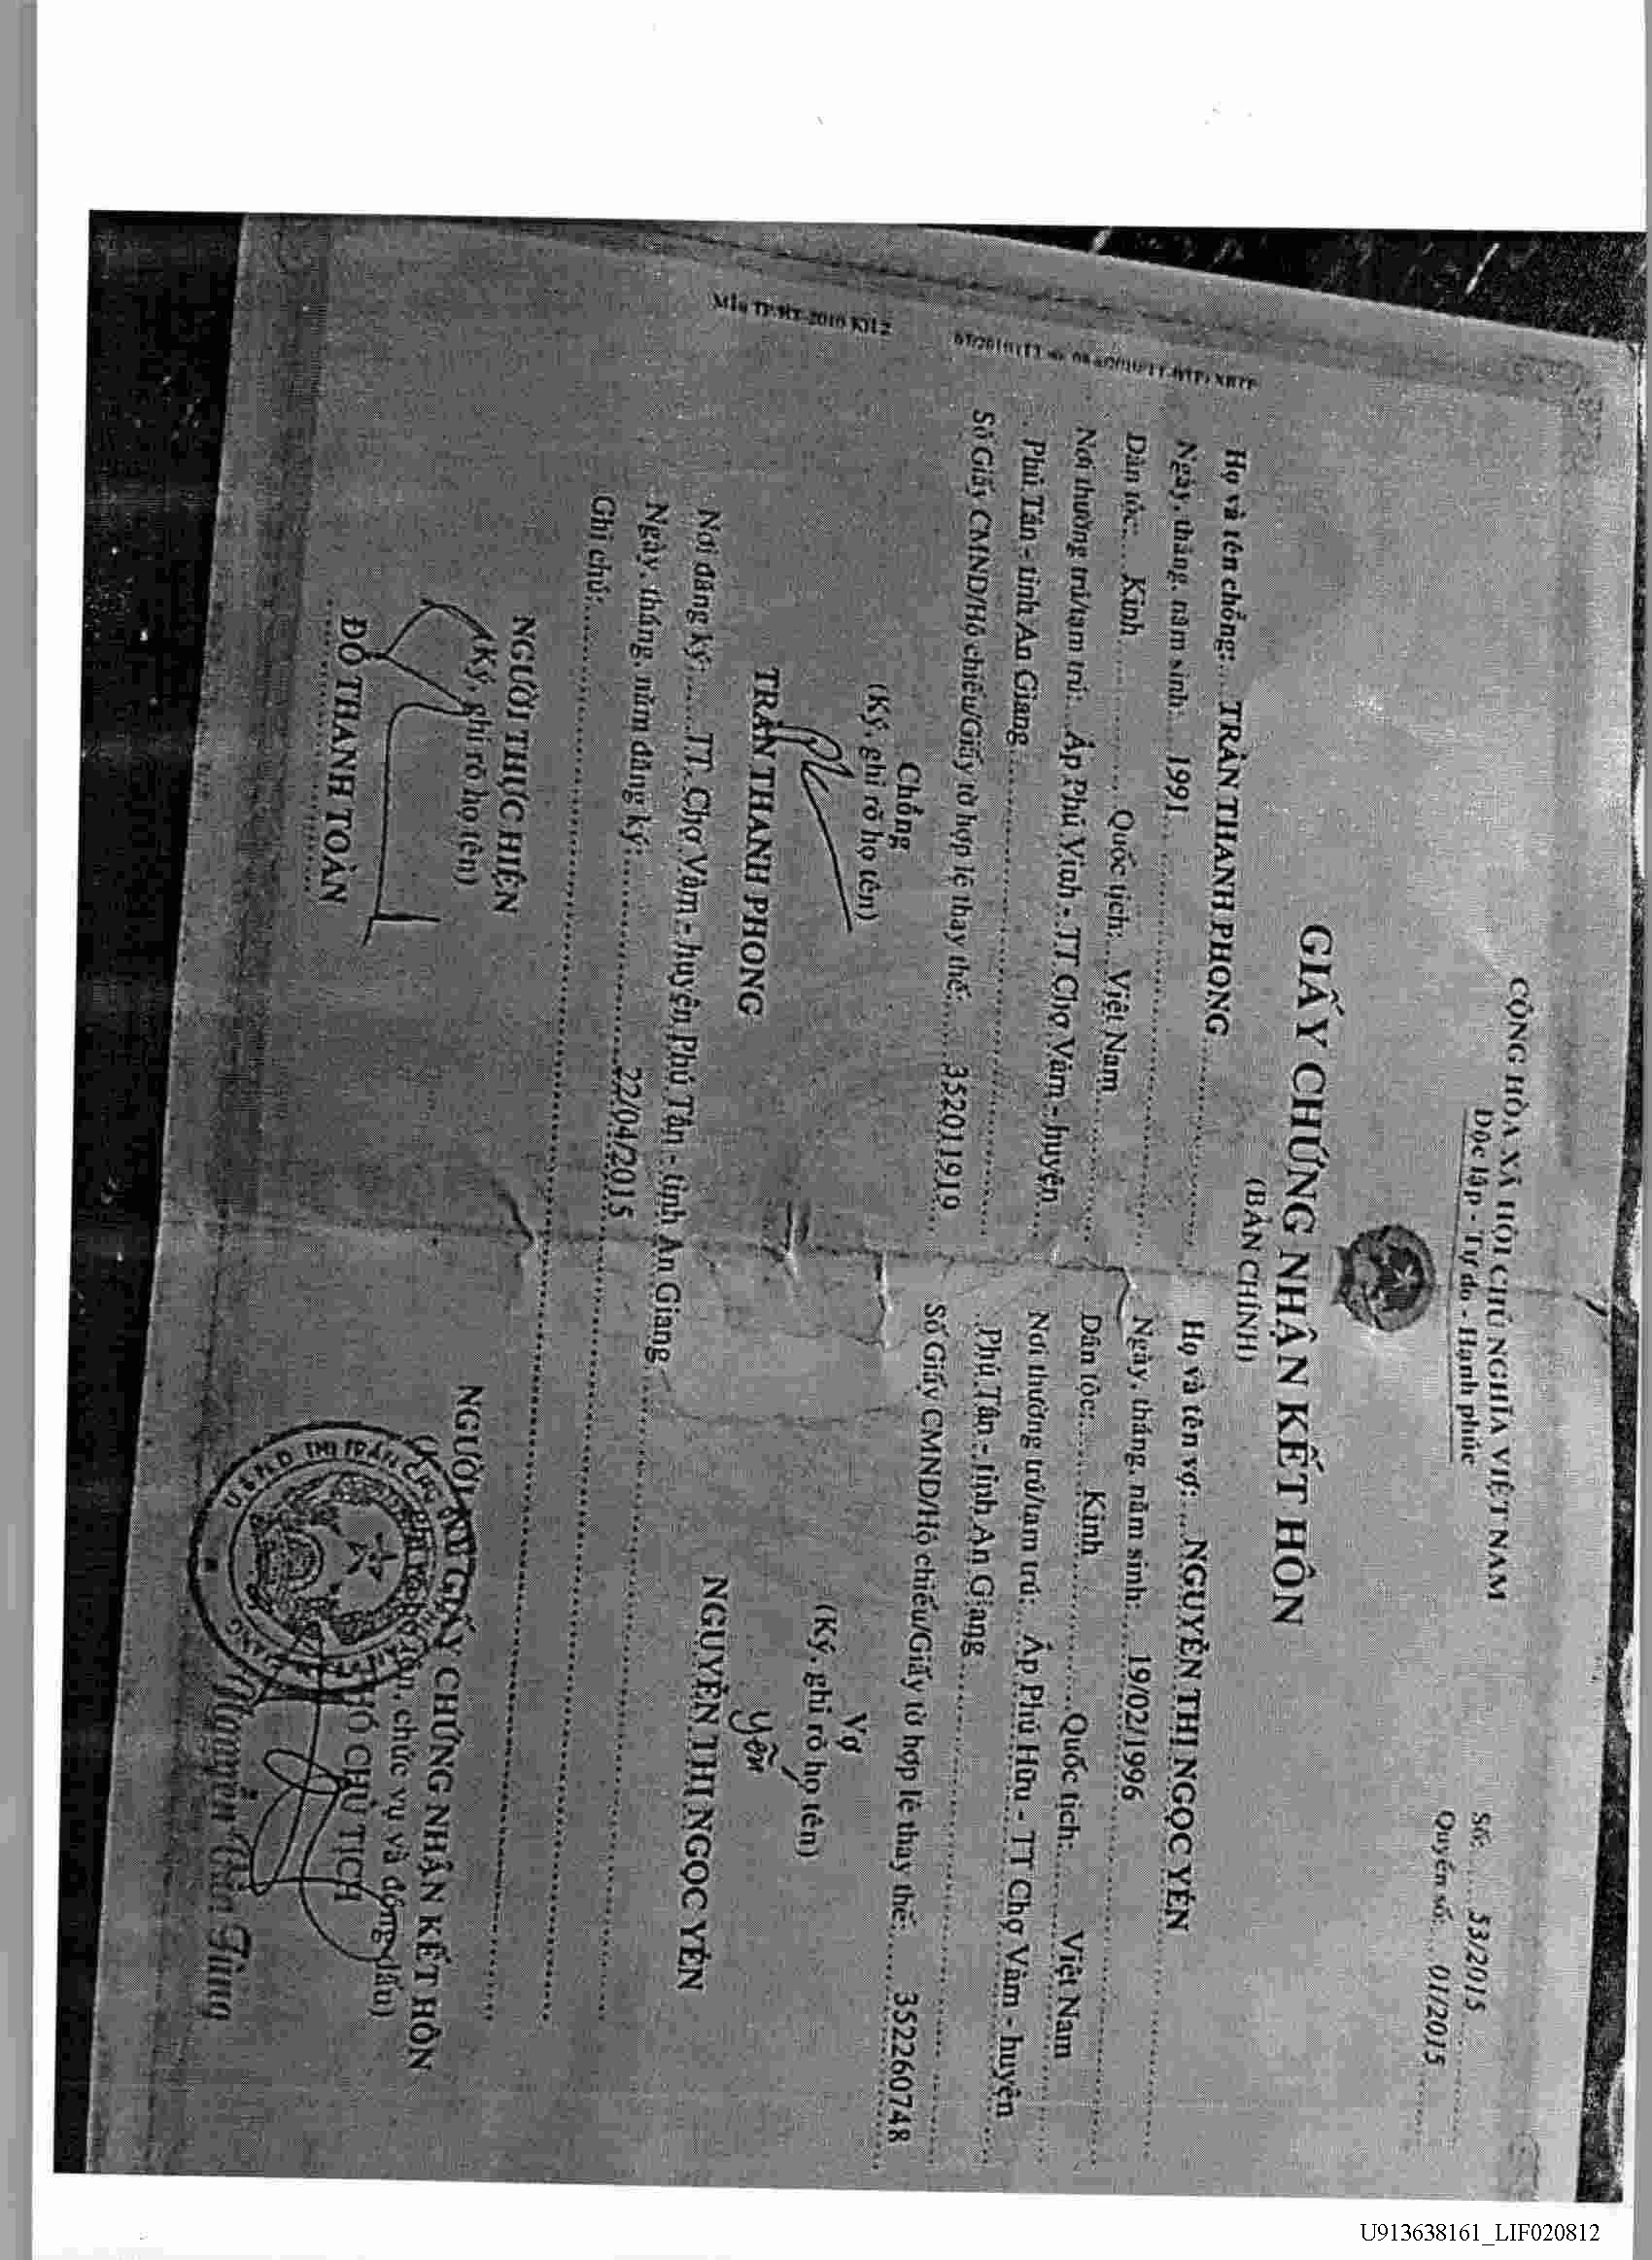 CỘNG HÒA XÃ HỘI CHỦ NGHĨA VIỆT NAM
Độc lập - Tự do - Hạnh phúc
Số: 53/2015
Quyển số: 01/2015
GIẤY CHỨNG NHẬN KẾT HÔN
(BẢN CHÍNH)
Họ và tên chồng: TRẦN THANH PHONG
Ngày, tháng, năm sinh: 1991
Dân tộc: Kinh Quốc tịch: Việt Nam
Nơi thường trú/tạm trú: Ấp Phú Vinh - TT Chợ Vàm - huyện
Phú Tân - tỉnh An Giang
Số Giấy CMND/Hộ chiếu/Giấy tờ hợp lệ thay thế: 352011919
Chồng
(Ký, ghi rõ họ tên)
TRẦN THANH PHONG
Họ và tên vợ: NGUYỄN THỊ NGỌC YẾN
Ngày, tháng, năm sinh: 19/02/1996
Dân tộc: Kinh Quốc tịch: Việt Nam
Nơi thường trú/tạm trú: Ấp Phú Hữu - TT Chợ Vàm - huyện
Phú Tân - tỉnh An Giang
Số Giấy CMND/Hộ chiếu/Giấy tờ hợp lệ thay thế: 352260748
Vợ
(Ký, ghi rõ họ tên)
Yến
NGUYỄN THỊ NGỌC YẾN
Nơi đăng ký: TT. Chợ Vàm - huyện Phú Tân - tỉnh An Giang
Ngày, tháng, năm đăng ký: 22/04/2015
Ghi chú:
NGƯỜI THỰC HIỆN
(Ký, ghi rõ họ tên)
ĐỖ THANH TOÀN
NGƯỜI KÝ GIẤY CHỨNG NHẬN KẾT HÔN
chức vụ và đóng dấu)
PHÓ CHỦ TỊCH
U.B.N.D THỊ TRẤN CHỢ
U913638161_LIF020812